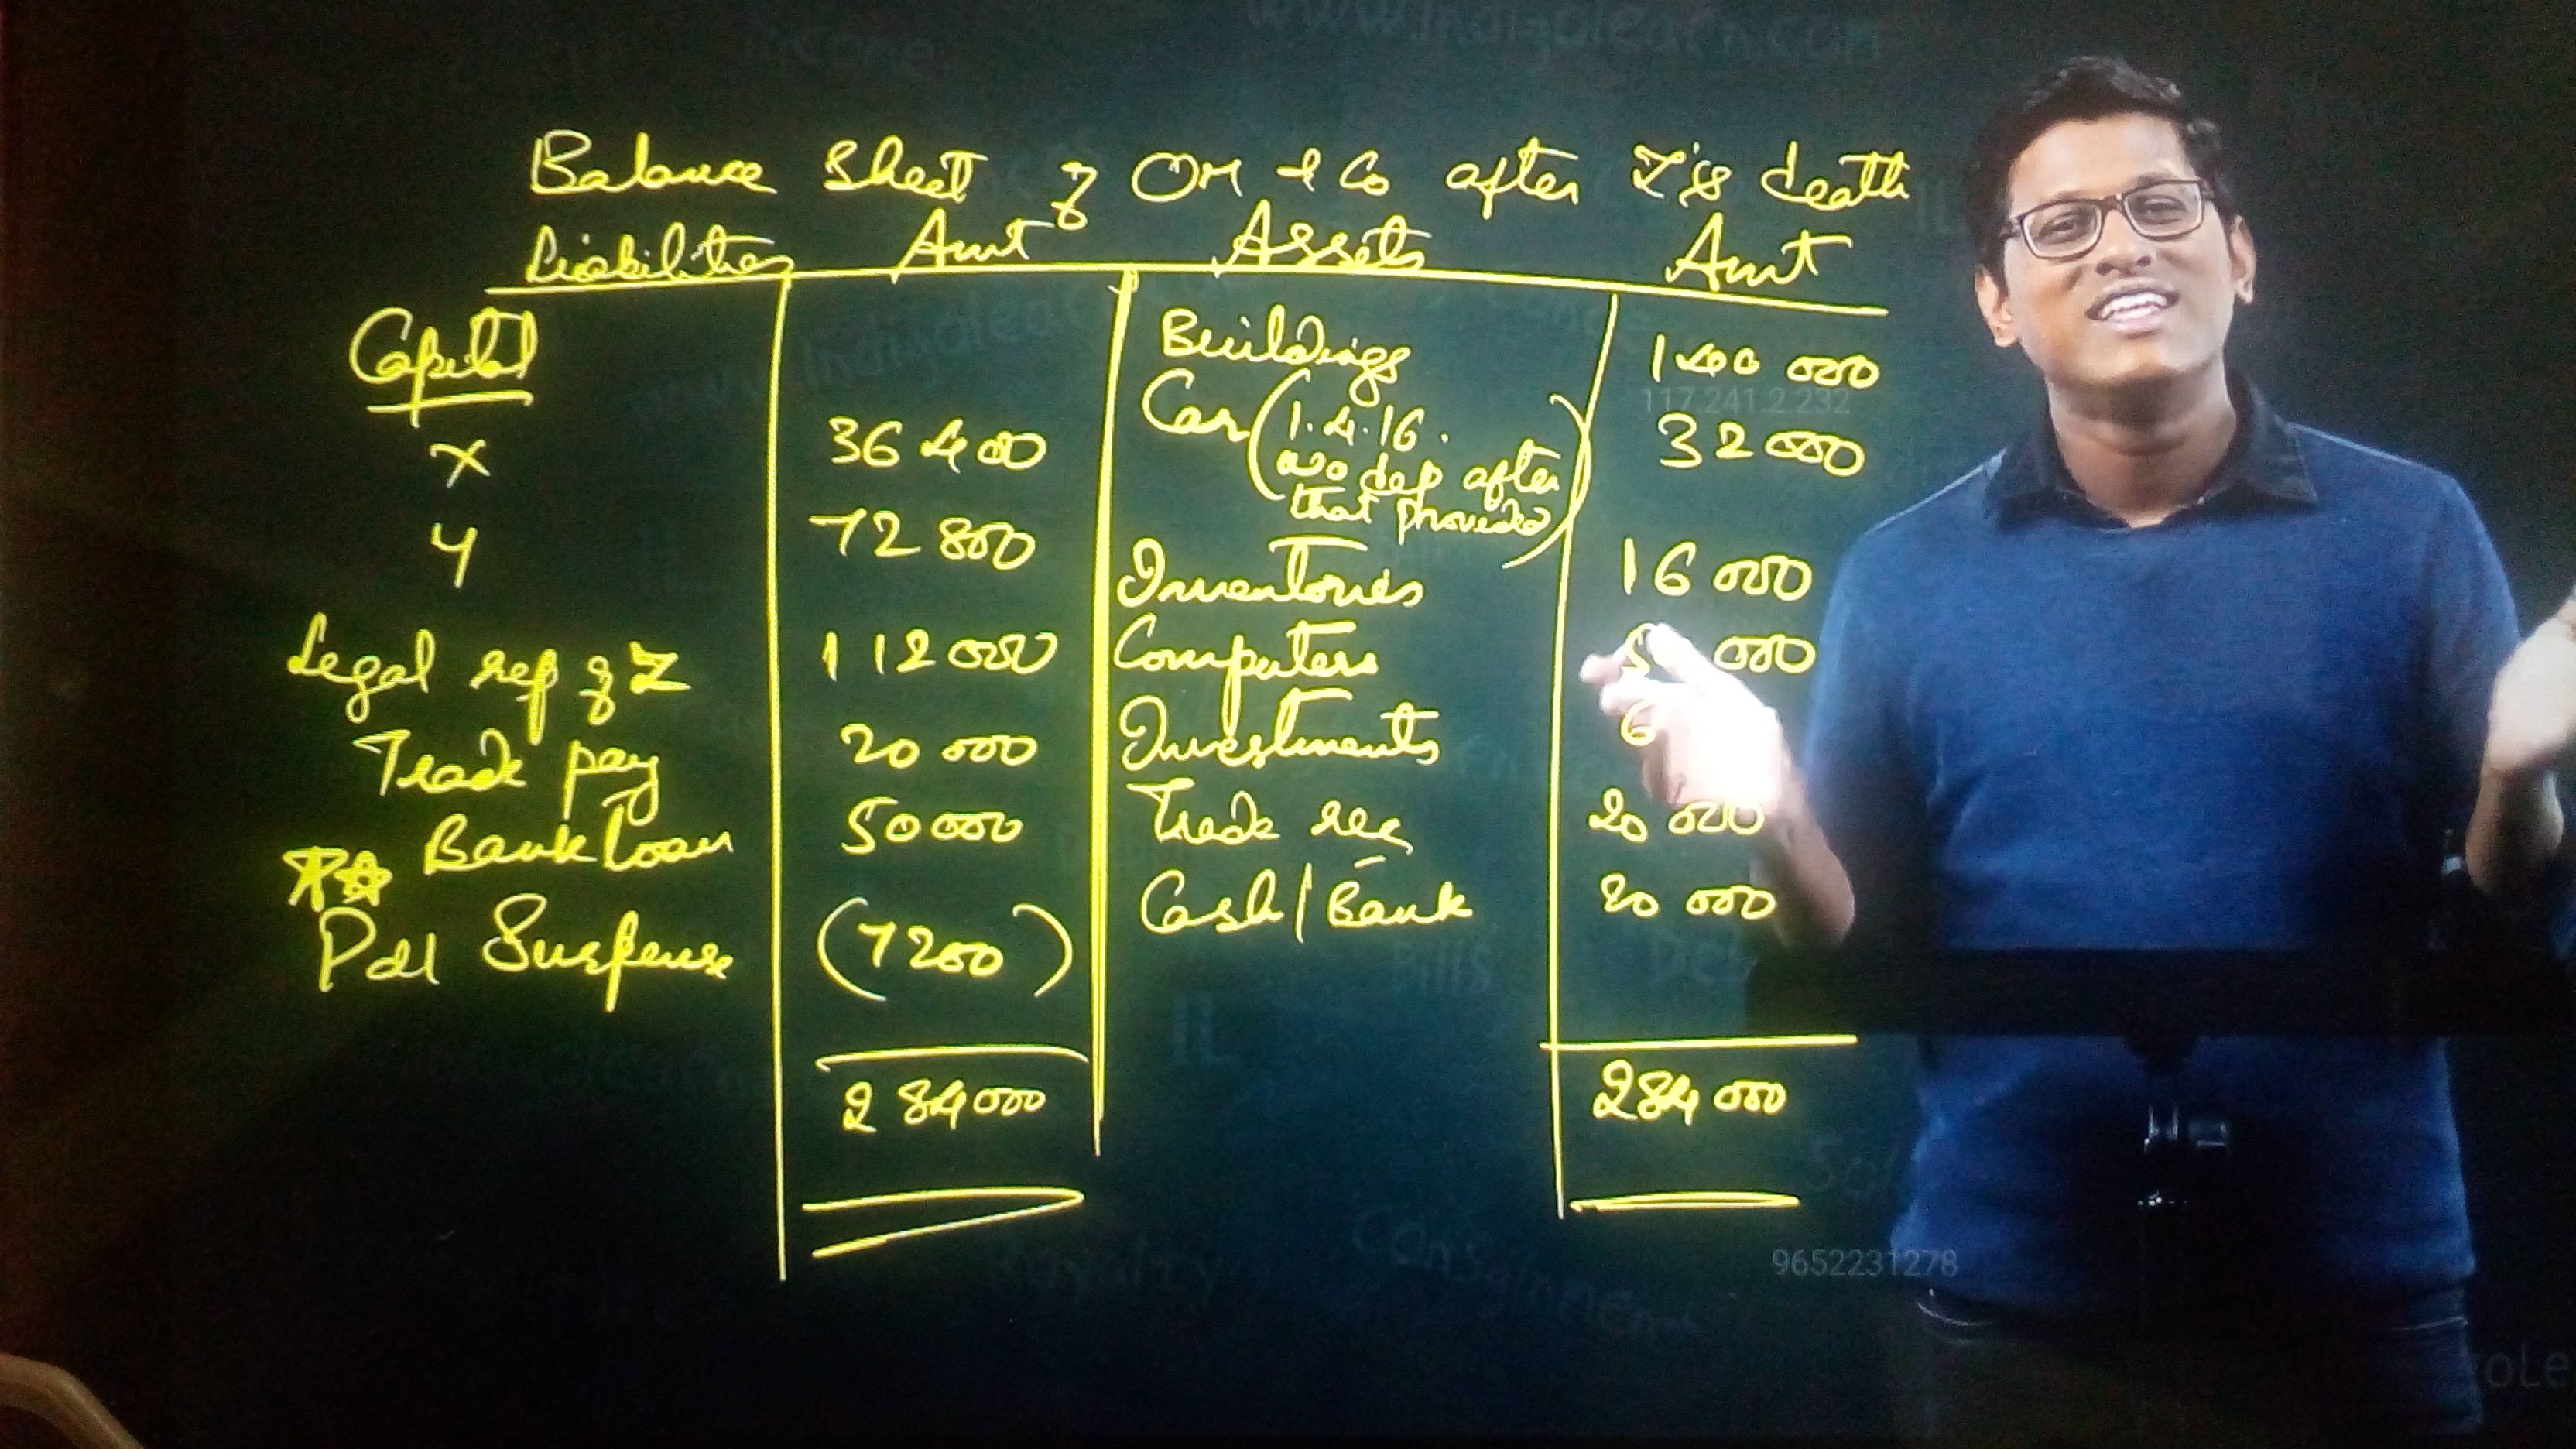 www.indigolearn.com
income
Balance Sheet of OM & Co after Z's death
Liabilities Amt Assets Amt
Capital
Buildings 140 000
X 36 400
Car (1.4.16. no dep after that provided) 32 000
117.241.2.232
Y 72 800
Inventories 16 000
Legal rep of Z 112 000
Computers 000
Trade pay 20 000
Investments 6
Bank loan 50 000
Trade rec 20 000
P&l Suspense (7200)
Cash/Bank 20 000
Bills
IL
284 000 284 000
9652231278
Royalty
Consignment